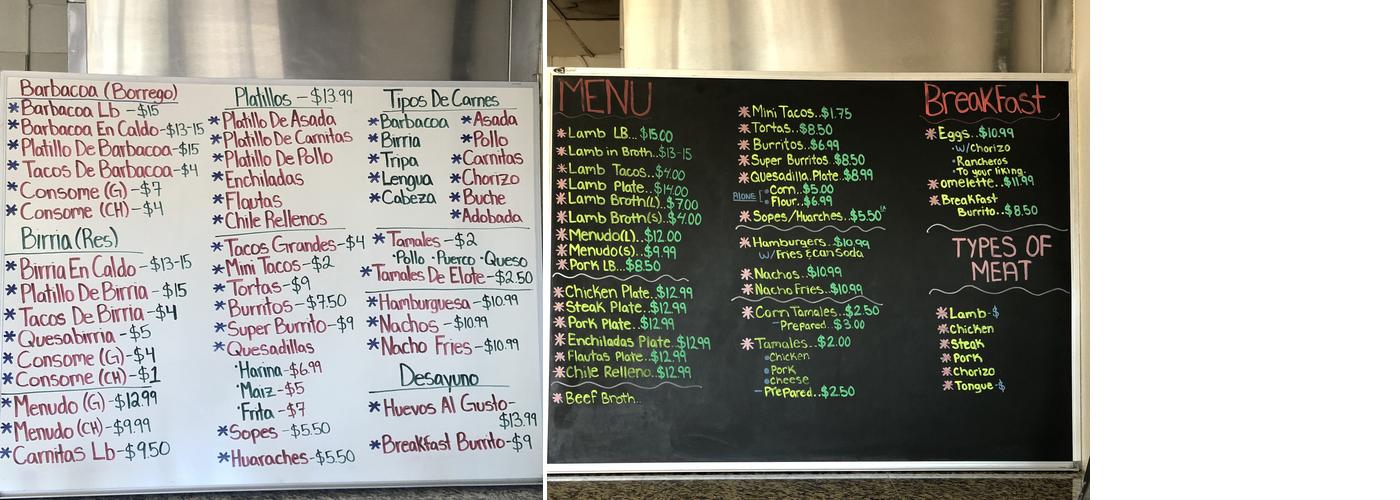 Barbacoa (Borrego)
*Barbacoa Lb - $15
*Barbacoa En Caldo-$13-15
*Platillo De Barbacoa-$15
Tacos De Barbacoa-$4
*Consome (G) - $7
*Consome (CH) - $4
Birria (Res)
*Birria En Caldo-$13-15
*Platillo De Birria - $15
*Tacos De Birria - $4
*Quesabirria - $5
*Consome (G) - $4
*Consome (CH) - $1
*Menudo (G) - $12.99
*Menudo (CH) - $9.99
*Carnitas Lb - $9.50
Platillos - $13.99
*Platillo De Asada
*Platillo De Carnitas
*Platillo De Pollo
*Enchiladas
*Flautas
*Chile Rellenos
*Tacos Grandes-$4
*Mini Tacos-$2
*Tortas-$9
*Burritos-$7.50
*Super Burrito-$9
*Quesadillas
·Harina-$6.99
·Maiz-$5
·Frita-$7
*Sopes-$5.50
*Huaraches-$5.50
Tipos De Carnes
*Barbacoa *Asada
*Birria *Pollo
*Tripa *Carnitas
*Lengua *Chorizo
*Cabeza *Buche
*Adobada
*Tamales-$2
·Pollo ·Puerco ·Queso
*Tamales De Elote-$2.50
*Hamburguesa-$10.99
*Nachos-$10.99
*Nacho Fries-$10.99
Desayuno
*Huevos Al Gusto-
$13.99
*Breakfast Burrito-$9
MENU
*Lamb LB...$15.00
*Lamb in Broth..$13-15
*Lamb Tacos..$4.00
*Lamb Plate..$14.00
*Lamb Broth(L)..$7.00
*Lamb Broth(s)..$4.00
*Menudo(L)..$12.00
*Menudo(s)..$9.99
*Pork LB...$8.50
*Chicken Plate..$12.99
*Steak Plate..$12.99
*Pork Plate..$12.99
*Enchiladas Plate..$12.99
*Flautas Plate..$12.99
*Chile Relleno..$12.99
*Beef Broth..
*Mini Tacos..$1.75
*Tortas..$8.50
*Burritos..$6.99
*Super Burritos..$8.50
*Quesadilla Plate..$8.99
ALONE
·Corn..$5.00
·Flour..$6.99
*Sopes/Huarches..$5.50
*Hamburgers..$10.99
w/Fries & can Soda
*Nachos..$10.99
*Nacho Fries..$10.99
*Corn Tamales..$2.50
-Prepared..$3.00
*Tamales..$2.00
·Chicken
·Pork
·Cheese
-Prepared..$2.50
BreakFast
*Eggs..$10.99
·w/Chorizo
·Rancheros
·To your liking.
*omelette..$11.99
*BreakFast
Burrito..$8.50
TYPES OF
MEAT
*Lamb-$
*Chicken
*Steak
*Pork
*Chorizo
*Tongue-$